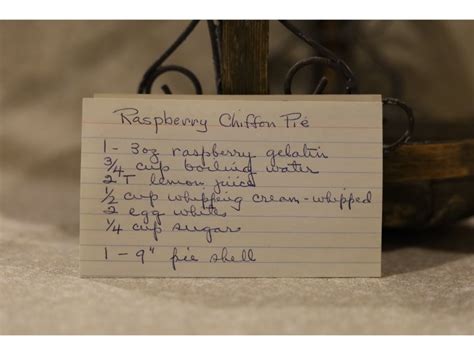 Raspberry Chiffon Pie
1 - 3oz raspberry gelatin
3/4 cup boiling water
2 T lemon juice
1/2 cup whipping cream - whipped
2 egg whites
1/4 cup sugar
1 - 9" pie shell